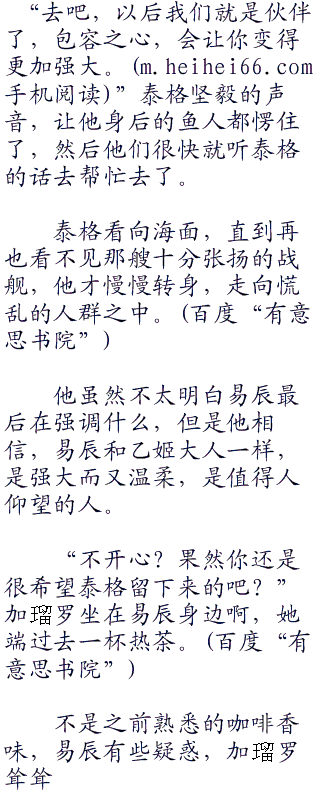 “去吧，以后我们就是伙伴
了，包容之心，会让你变得
更加强大。(m.heihei66.com
手机阅读)”泰格坚毅的声
音，让他身后的鱼人都愣住
了，然后他们很快就听泰格
的话去帮忙去了。
泰格看向海面，直到再
也看不见那艘十分张扬的战
舰，他才慢慢转身，走向慌
乱的人群之中。(百度“有意
思书院”)
他虽然不太明白易辰最
后在强调什么，但是他相
信，易辰和乙姬大人一样，
是强大而又温柔，是值得人
仰望的人。
“不开心？果然你还是
很希望泰格留下来的吧？”
加瑠罗坐在易辰身边啊，她
端过去一杯热茶。(百度“有
意思书院”)
不是之前熟悉的咖啡香
味，易辰有些疑惑，加瑠罗
耸耸